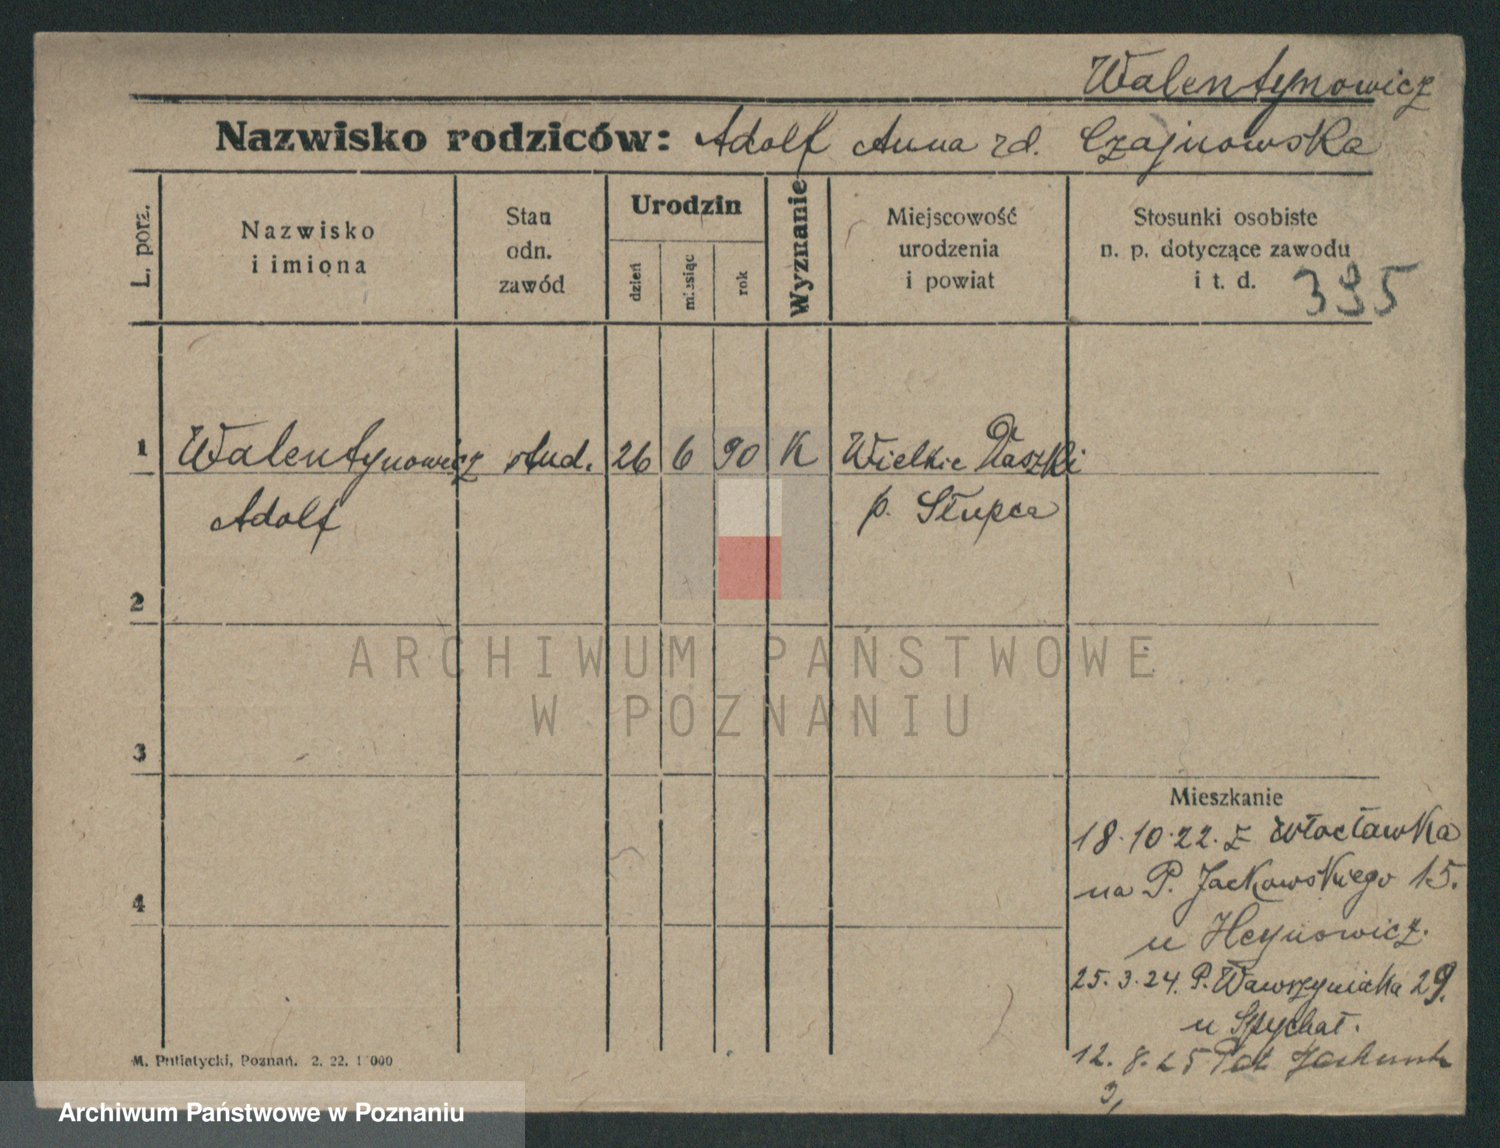 Walentynowicz
Nazwisko rodziców: Adolf Anna zd. Czajnowska
L. porz.
Nazwisko
i imiona
Stan
odn.
zawód
Urodzin
dzień
miesiąc
rok
Wyznanie
Miejscowość
urodzenia
i powiat
Stosunki osobiste
n. p. dotyczące zawodu
i t. d.
395
1 Walentynowicz stud. 26 6 90 K Wielkie
Adolf p. Słupca
2
3
4
ARCHIWUM PAŃSTWOWE
W POZNANIU
Mieszkanie
18.10.22. z Włocławka
na P. Jackowskiego 15.
u Heynowicz.
25.3.24. P. Wawrzyniaka 29.
u Spychał.
12.8.25
3,
M. Putiatycki, Poznań. 2. 22. 1000
Archiwum Państwowe w Poznaniu